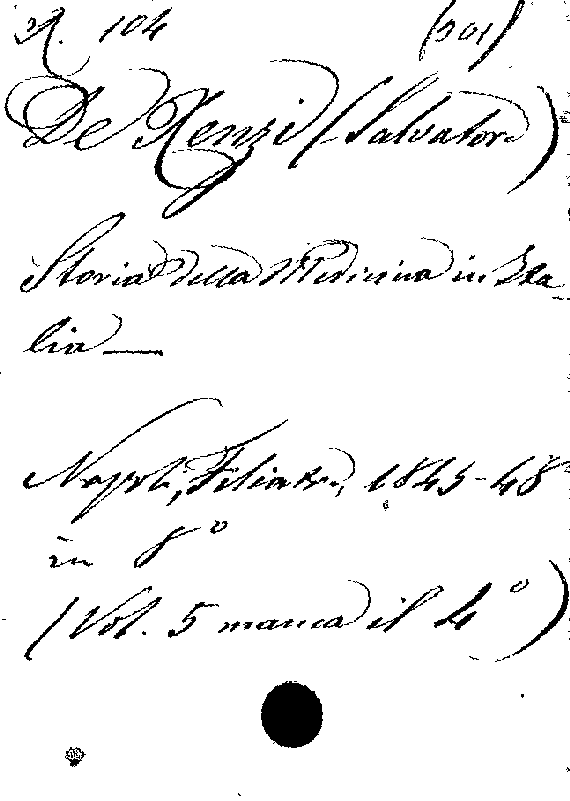 R. 104 (201)
De Renzi (Salvatore)
Storia della Medicina in Ita-
lia —
Napoli, Filiatre, 1845-48
in 8°
(Vol. 5 manca il 4°)